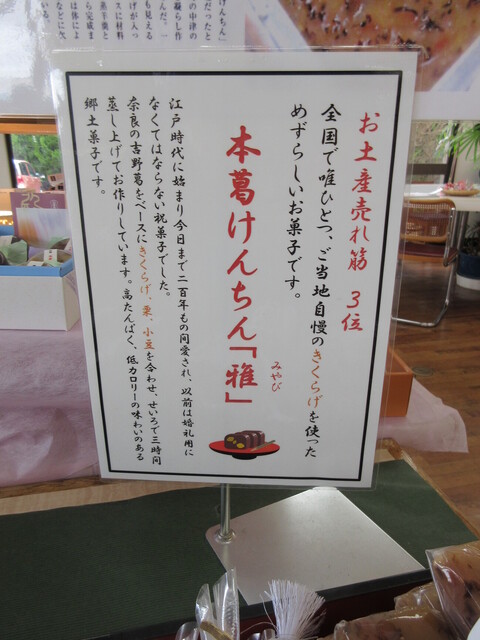 お土産売れ筋 3位
全国で唯ひとつ、ご当地自慢のきくらげを使った
めずらしいお菓子です。
本葛けんちん「雅」
みやび
江戸時代に始まり今日まで二百年もの間愛され、以前は婚礼用に
なくてはならない祝菓子でした。
奈良の吉野葛をベースにきくらげ、栗、小豆を合わせ、せいろで三時間
蒸し上げてお作りしています。高たんぱく、低カロリーの味わいのある
郷土菓子です。